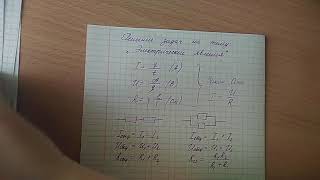 Решение задач на тему
„Электрические явления"
I = q/t (А)
U = A/q (В)
R = (Ом)
Закон Ома
I = U/R
Iобщ = I₁ = I₂
Uобщ = U₁ + U₂
Rобщ = R₁ + R₂
Iобщ = I₁ + I₂
Uобщ = U₁ = U₂
R₁R₂/R₁ + R₂